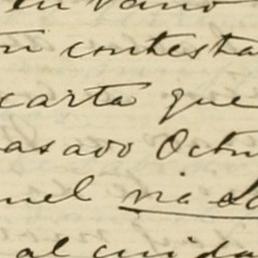 en vano
contesta
carta que
asado Octu
nuel via
al cuida